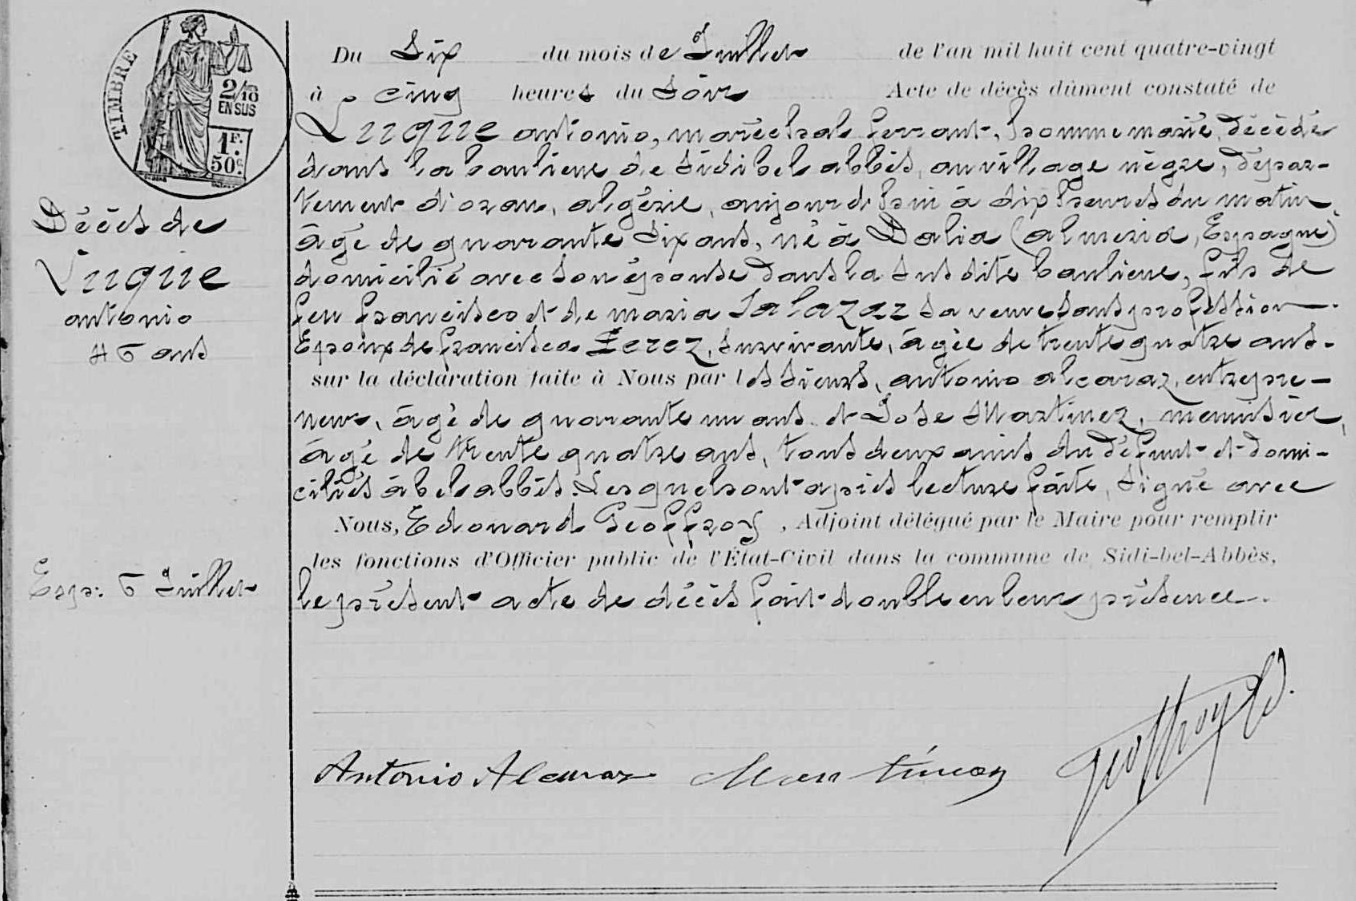 TIMBRE
2/10
EN SUS
1F.
50c.
Du Six du mois de Juillet de l'an mil huit cent quatre-vingt
à cinq heures du Soir Acte de décès dûment constaté de
Luque antonio, maréchal ferrant, homme marié, décédé
dans la banlieue de Sidi bel abbès, au village nègre, dépar-
tement d'oran, algérie, aujourd'hui à dix heures du matin,
âgé de quarante Six ans, né à Dalia (almeria, Espagne)
domicilié avec Son épouse, dans la Susdite banlieue, fils de
feu francisco et de maria Salazar Sa veuve Sans profession.
Epoux de francisca Perez, Survivante, âgée de trente quatre ans.
sur la déclaration faite à Nous par les Sieurs, antonio alcaraz, entrepre-
neur, âgé de quarante un ans et José Martinez, menuisier,
âgé de trente quatre ans, tous deux amis du défunt et domi-
ciliés à bel abbès. Lesquels ont après lecture faite, Signé avec
Nous, Edouard Geoffroy, Adjoint délégué par le Maire pour remplir
les fonctions d'Officier public de l'État-Civil dans la commune de Sidi-bel-Abbès,
le présent acte de décès fait double en leur présence.
Décès de
Luque
antonio
46 ans
Exp: 6 Juillet
Antonio Alcaraz
Geoffroy E.